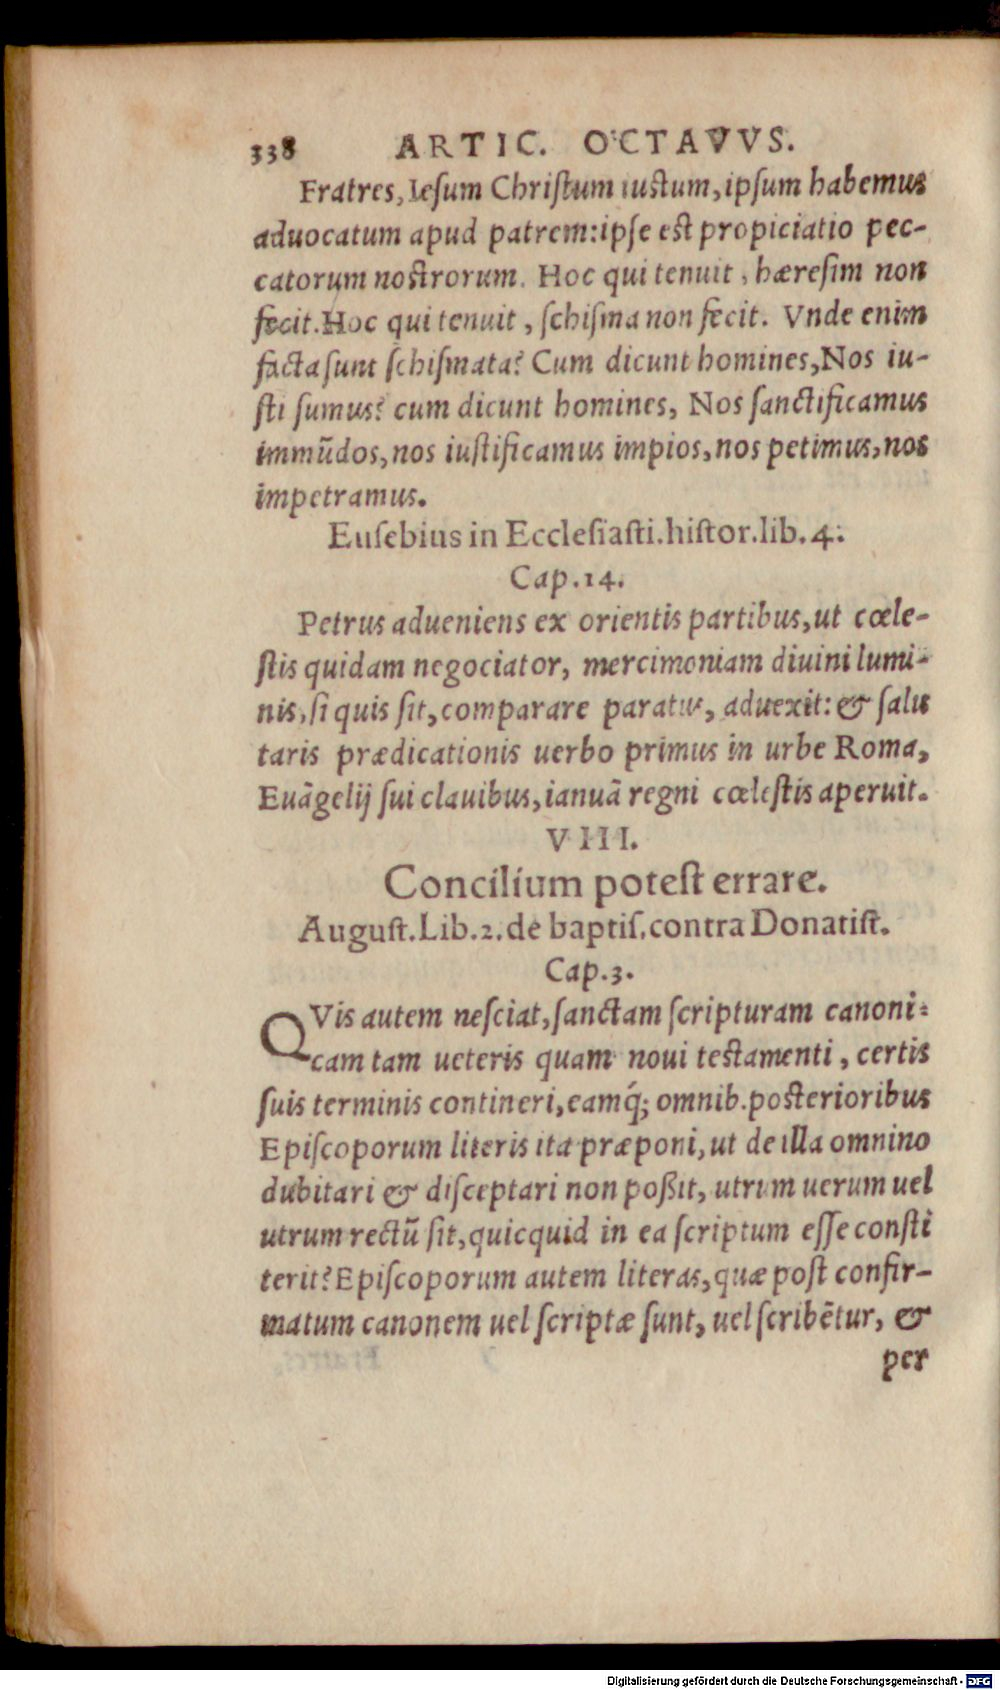 338 ARTIC. OCTAVVS.
Fratres, Iesum Christum iustum, ipsum habemus
aduocatum apud patrem: ipse est propiciatio pec-
catorum nostrorum. Hoc qui tenuit, hæresim non
fecit. Hoc qui tenuit, schisma non fecit. Vnde enim
facta sunt schismata? Cum dicunt homines, Nos iu-
sti sumus? cum dicunt homines, Nos sanctificamus
immũdos, nos iustificamus impios, nos petimus, nos
impetramus.
Eusebius in Ecclesiasti. histor. lib. 4:
Cap. 14.
Petrus adueniens ex orientis partibus, ut cœle-
stis quidam negociator, mercimoniam diuini lumi-
nis, si quis sit, comparare paratus, aduexit: & salu
taris prædicationis uerbo primus in urbe Roma,
Euãgelij sui clauibus, ianuã regni cœlestis aperuit.
VIII.
Concilium potest errare.
August. Lib. 2. de baptis. contra Donatist.
Cap. 3.
QVis autem nesciat, sanctam scripturam canoni-
cam tam ueteris quam noui testamenti, certis
suis terminis contineri, eamq́; omnib. posterioribus
Episcoporum literis ita præponi, ut de illa omnino
dubitari & disceptari non poßit, utrum uerum uel
utrum rectũ sit, quicquid in ea scriptum esse consti
terit? Episcoporum autem literas, quæ post confir-
matum canonem uel scriptæ sunt, uel scribẽtur, &
per
Digitalisierung gefördert durch die Deutsche Forschungsgemeinschaft - DFG